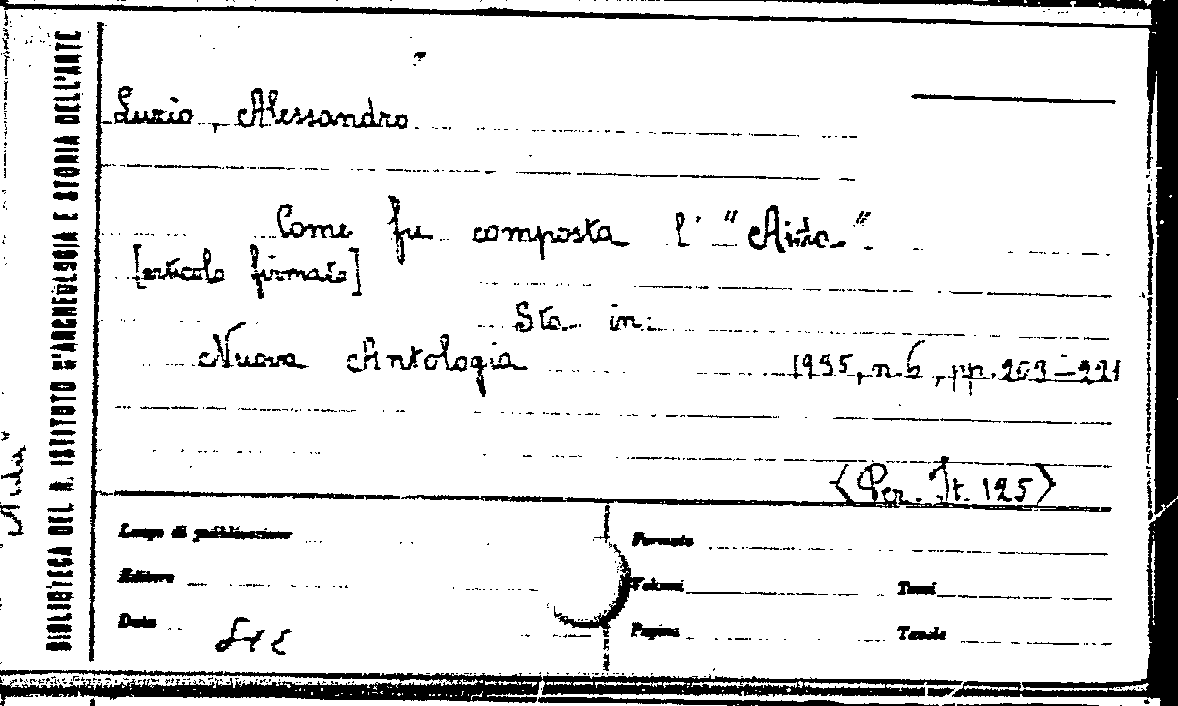 BIBLIOTECA DEL R. ISTITUTO D'ARCHEOLOGIA E STORIA DELL'ARTE
Luzio, Alessandro
Come fu composta l'"Aida".
[articolo firmato]
Sta in:
Nuova Antologia 1935, n. 6, pp. 203-221
<Per. It. 125>
Luogo di pubblicazione
Formato
Editore
Volumi
Tomi
Data
Pagine
Tavole